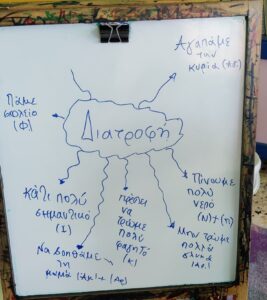 Αγαπάμε
την
κυρία (Α.Γ.)
Πάμε
σχολείο
(Φ)
Διατροφή
Πίνουμε
πολύ
νερό
(Ν)+(Π)
Κάτι πολύ
σημαντικό
(Ι)
πρέπει
να
τρώμε
πολύ
φαγητό
(Κ)
Μην τρώμε
πολλά
γλυκά
Να βοηθάμε
τη
μαμά